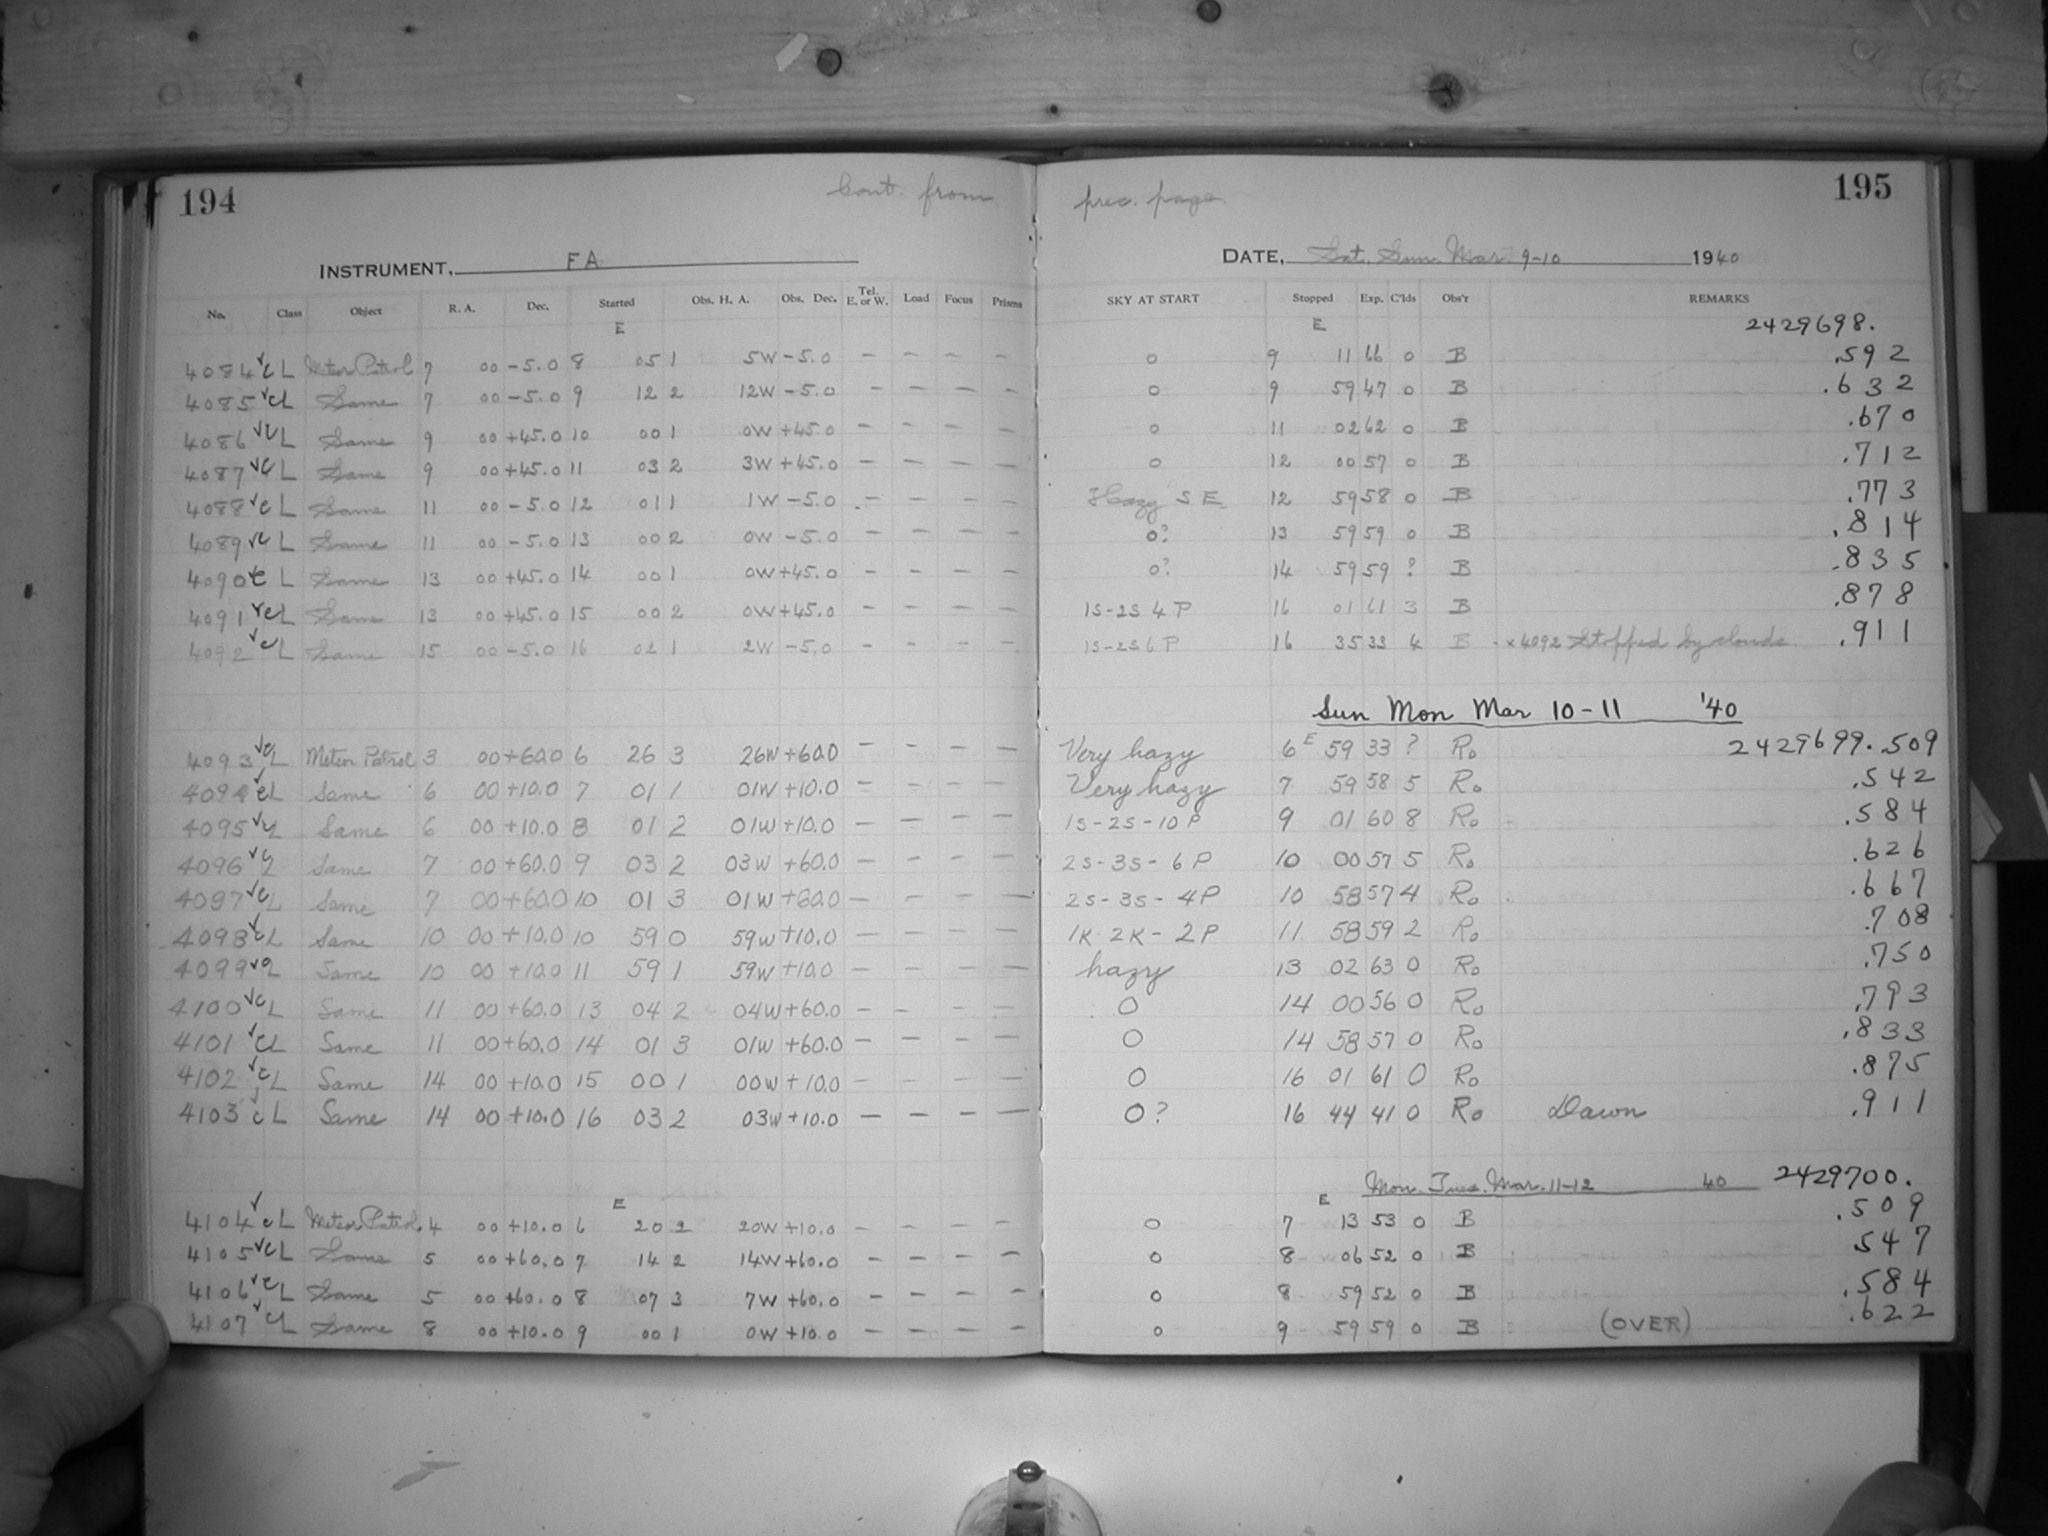 194 Cont. from prec. page. 195
INSTRUMENT, FA DATE, Sat. Sun. Mar 9-10 1940
No. Class Object R. A. Dec. Started Obs. H. A. Obs. Dec. Tel. E. or W. Load Focus Prisms SKY AT START Stopped Exp. C'lds Obs'r REMARKS
E E 2429698.
4084 ✓ c L Meteor Patrol 7 00 -5.0 8 05 1 5W -5.0 — — — — 0 9 11 66 0 B .592
4085 ✓ c L Same 7 00 -5.0 9 12 2 12W -5.0 — — — — 0 9 59 47 0 B .632
4086 ✓ c L Same 9 00 +45.0 10 00 1 0W +45.0 — — — — 0 11 02 62 0 B .670
4087 ✓ c L Same 9 00 +45.0 11 03 2 3W +45.0 — — — — 0 12 00 57 0 B .712
4088 ✓ c L Same 11 00 -5.0 12 01 1 1W -5.0 — — — — Hazy S E 12 59 58 0 B .773
4089 ✓ c L Same 11 00 -5.0 13 00 2 0W -5.0 — — — — 0? 13 59 59 0 B .814
4090 ✓ c L Same 13 00 +45.0 14 00 1 0W +45.0 — — — — 0? 14 59 59 ? B .835
4091 ✓ c L Same 13 00 +45.0 15 00 2 0W +45.0 — — — — 1S-2S 4 P 16 01 61 3 B .878
4092 ✓ c L Same 15 00 -5.0 16 02 1 2W -5.0 — — — — 1S-2S 6 P 16 35 33 4 B x 4092 Stopped by clouds. .911
Sun Mon Mar 10-11 '40
4093 ✓ c L Meteor Patrol 3 00 +60.0 6 26 3 26W +60.0 — — — — Very hazy 6 E 59 33 ? Ro 2429699.509
4094 ✓ c L Same 6 00 +10.0 7 01 1 01W +10.0 — — — — Very hazy 7 59 58 5 Ro .542
4095 ✓ c L Same 6 00 +10.0 8 01 2 01W +10.0 — — — — 1S-2S-10P 9 01 60 8 Ro .584
4096 ✓ c L Same 7 00 +60.0 9 03 2 03W +60.0 — — — — 2S-3S-6P 10 00 57 5 Ro .626
4097 ✓ c L Same 7 00 +60.0 10 01 3 01W +60.0 — — — — 2S-3S-4P 10 58 57 4 Ro .667
4098 ✓ c L Same 10 00 +10.0 10 59 0 59W +10.0 — — — — 1K 2K-2P 11 58 59 2 Ro .708
4099 ✓ c L Same 10 00 +10.0 11 59 1 59W +10.0 — — — — hazy 13 02 63 0 Ro .750
4100 ✓ c L Same 11 00 +60.0 13 04 2 04W +60.0 — — — — 0 14 00 56 0 Ro .793
4101 ✓ c L Same 11 00 +60.0 14 01 3 01W +60.0 — — — — 0 14 58 57 0 Ro .833
4102 ✓ c L Same 14 00 +10.0 15 00 1 00W +10.0 — — — — 0 16 01 61 0 Ro .875
4103 ✓ c L Same 14 00 +10.0 16 03 2 03W +10.0 — — — — 0? 16 44 41 0 Ro Dawn .911
E E Mon. Tues. Mar. 11-12 40 2429700.
4104 ✓ c L Meteor Patrol. 4 00 +10.0 6 20 2 20W +10.0 — — — — 0 7 13 53 0 B .509
4105 ✓ c L Same 5 00 +60.0 7 14 2 14W +60.0 — — — — 0 8 06 52 0 B .547
4106 ✓ c L Same 5 00 +60.0 8 07 3 7W +60.0 — — — — 0 8 59 52 0 B .584
4107 ✓ c L Same 8 00 +10.0 9 00 1 0W +10.0 — — — — 0 9 59 59 0 B (OVER) .622